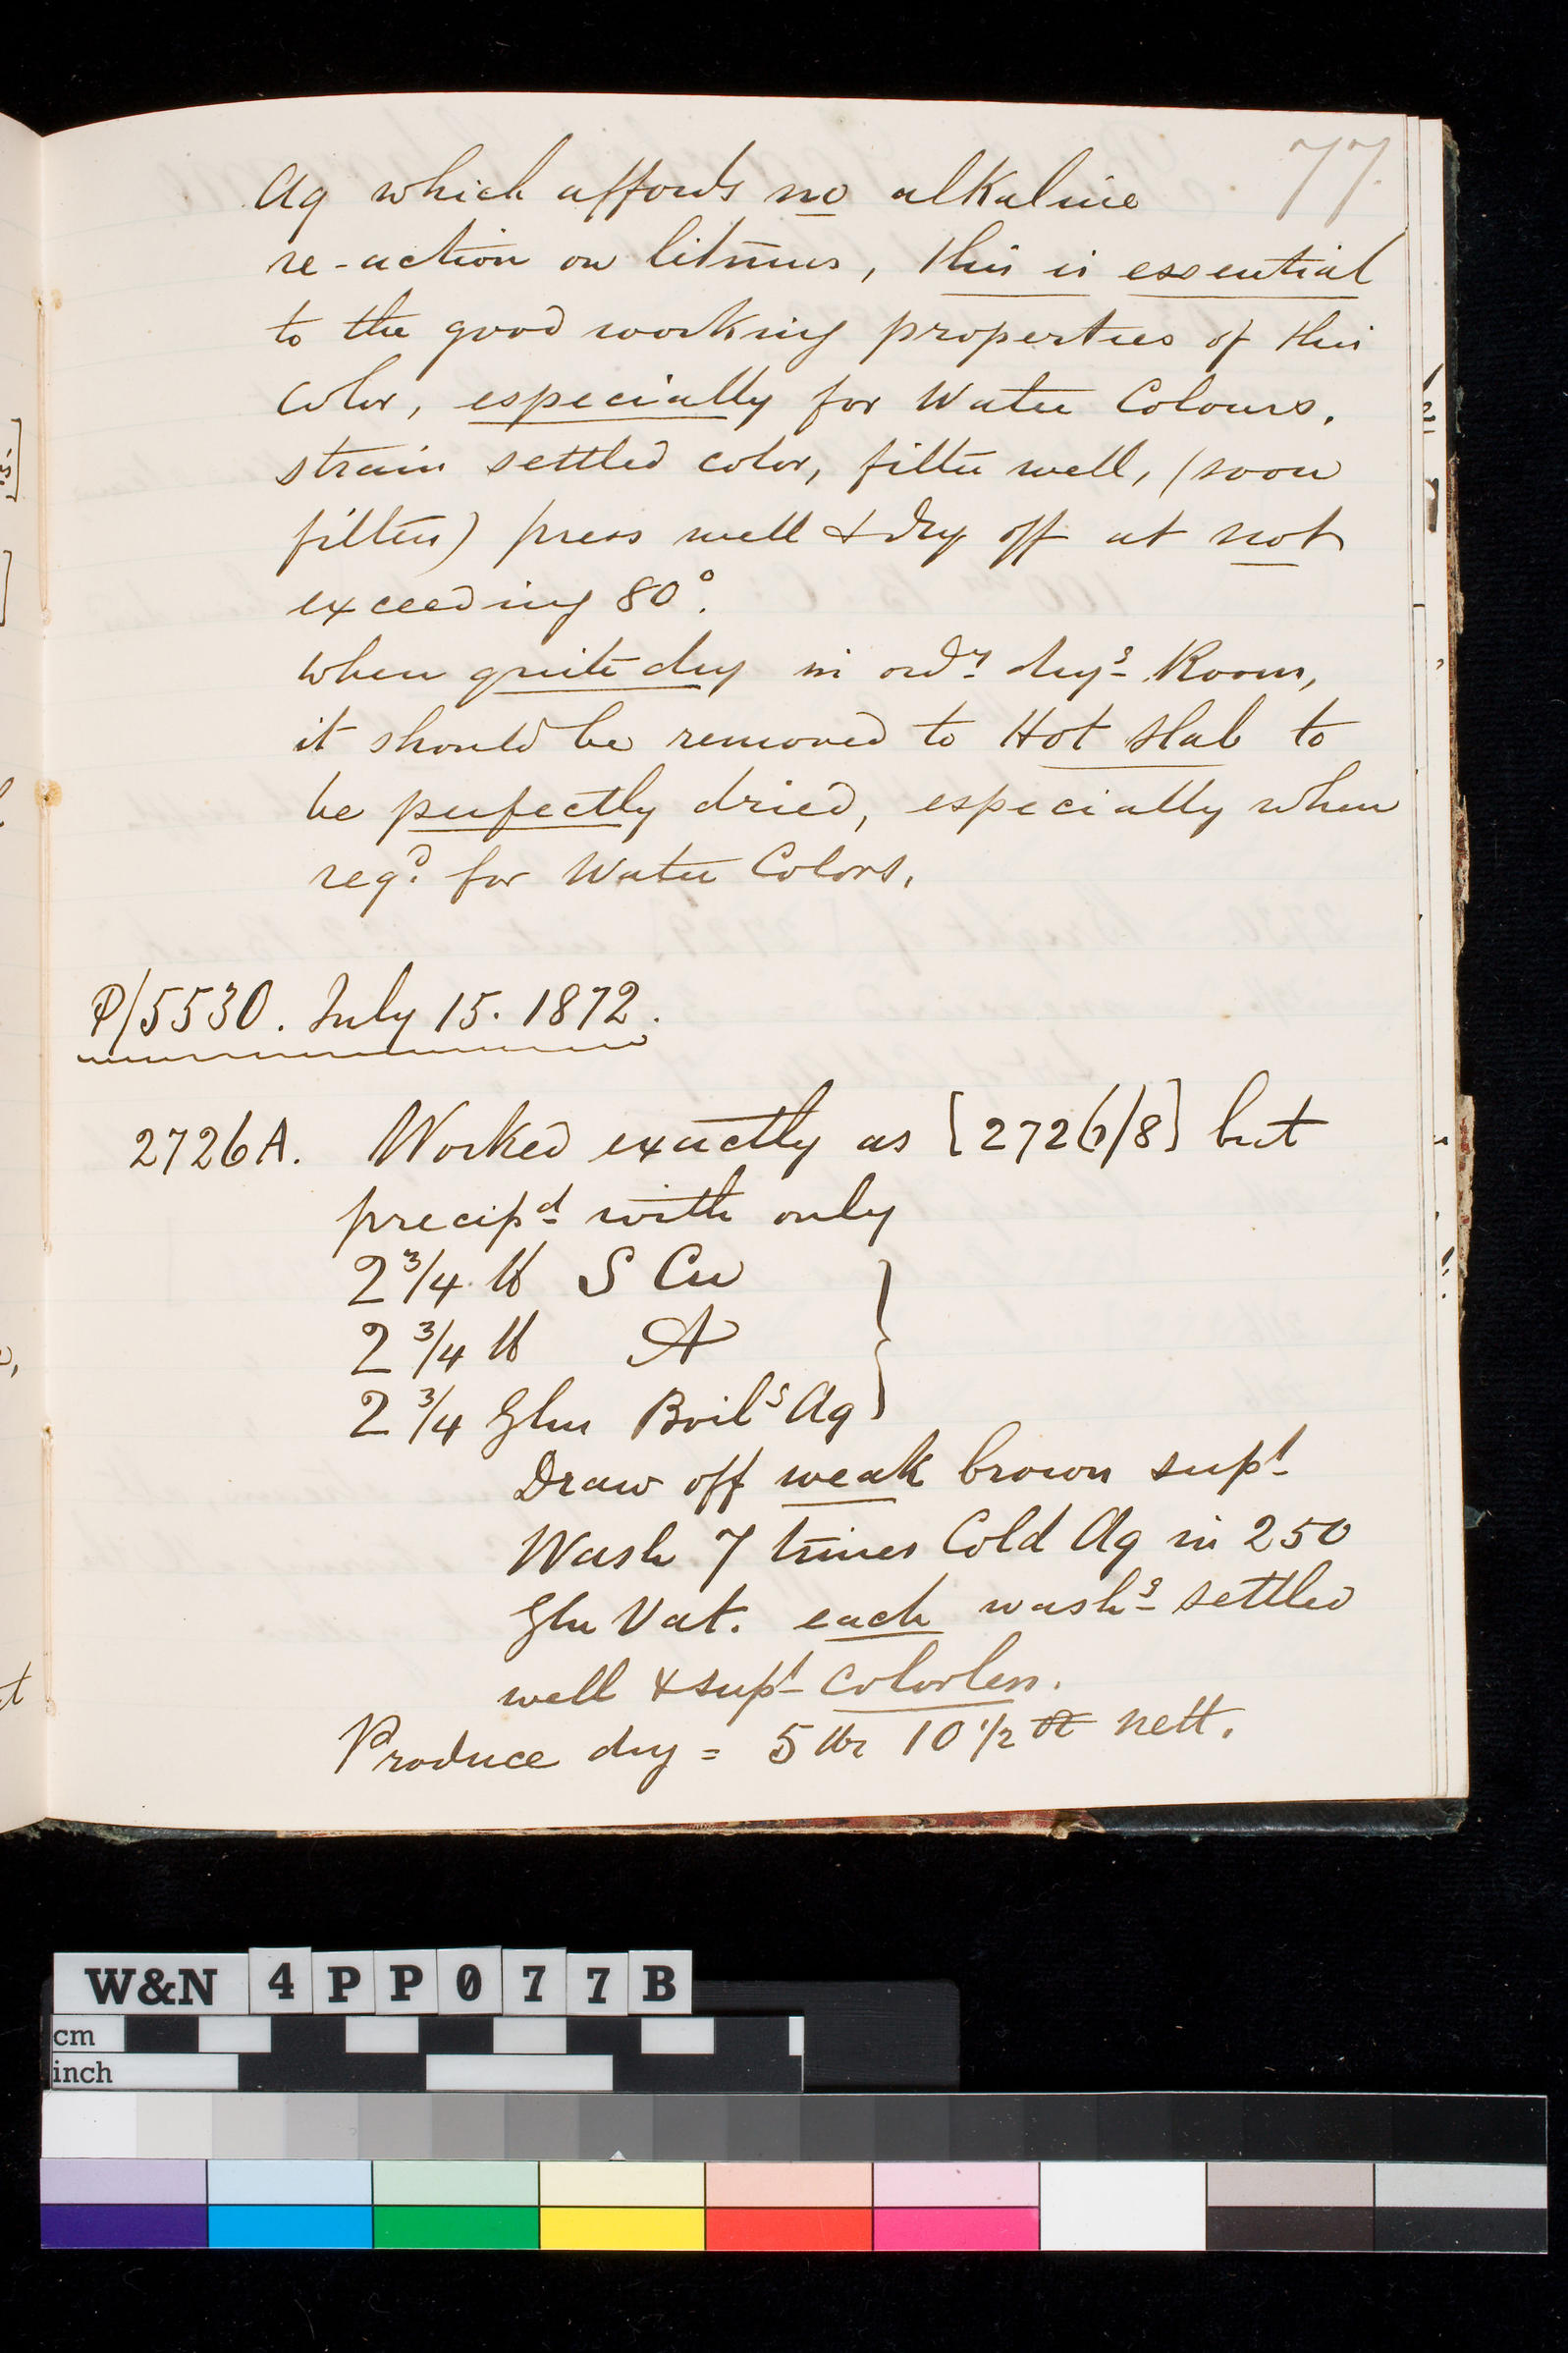 77.
Aq which affords no alkaline
re-action on litmus, this is essential
to the good working properties of this
color, especially for Water Colours.
strain settled color, filter well, (soon
filters) press well & dry off at not
exceeding 80°.
when quite dry in ordy dryg Room,
it should be removed to Hot Slab to
be perfectly dried, especially when
reqd for Water Colors.
P/5530. July 15. 1872.
2726A. Worked exactly as [2726/8] but
precipd with only
2 3/4 lb S Cu
2 3/4 lb A
2 3/4 Glns Boilg Aq
Draw off weak brown supt
Wash 7 times Cold Aq in 250
Gln Vat. each washg settled
well & supt colorless.
Produce dry = 5 lbs 10 1/2 oz nett.
W&N 4PP077B
cm
inch